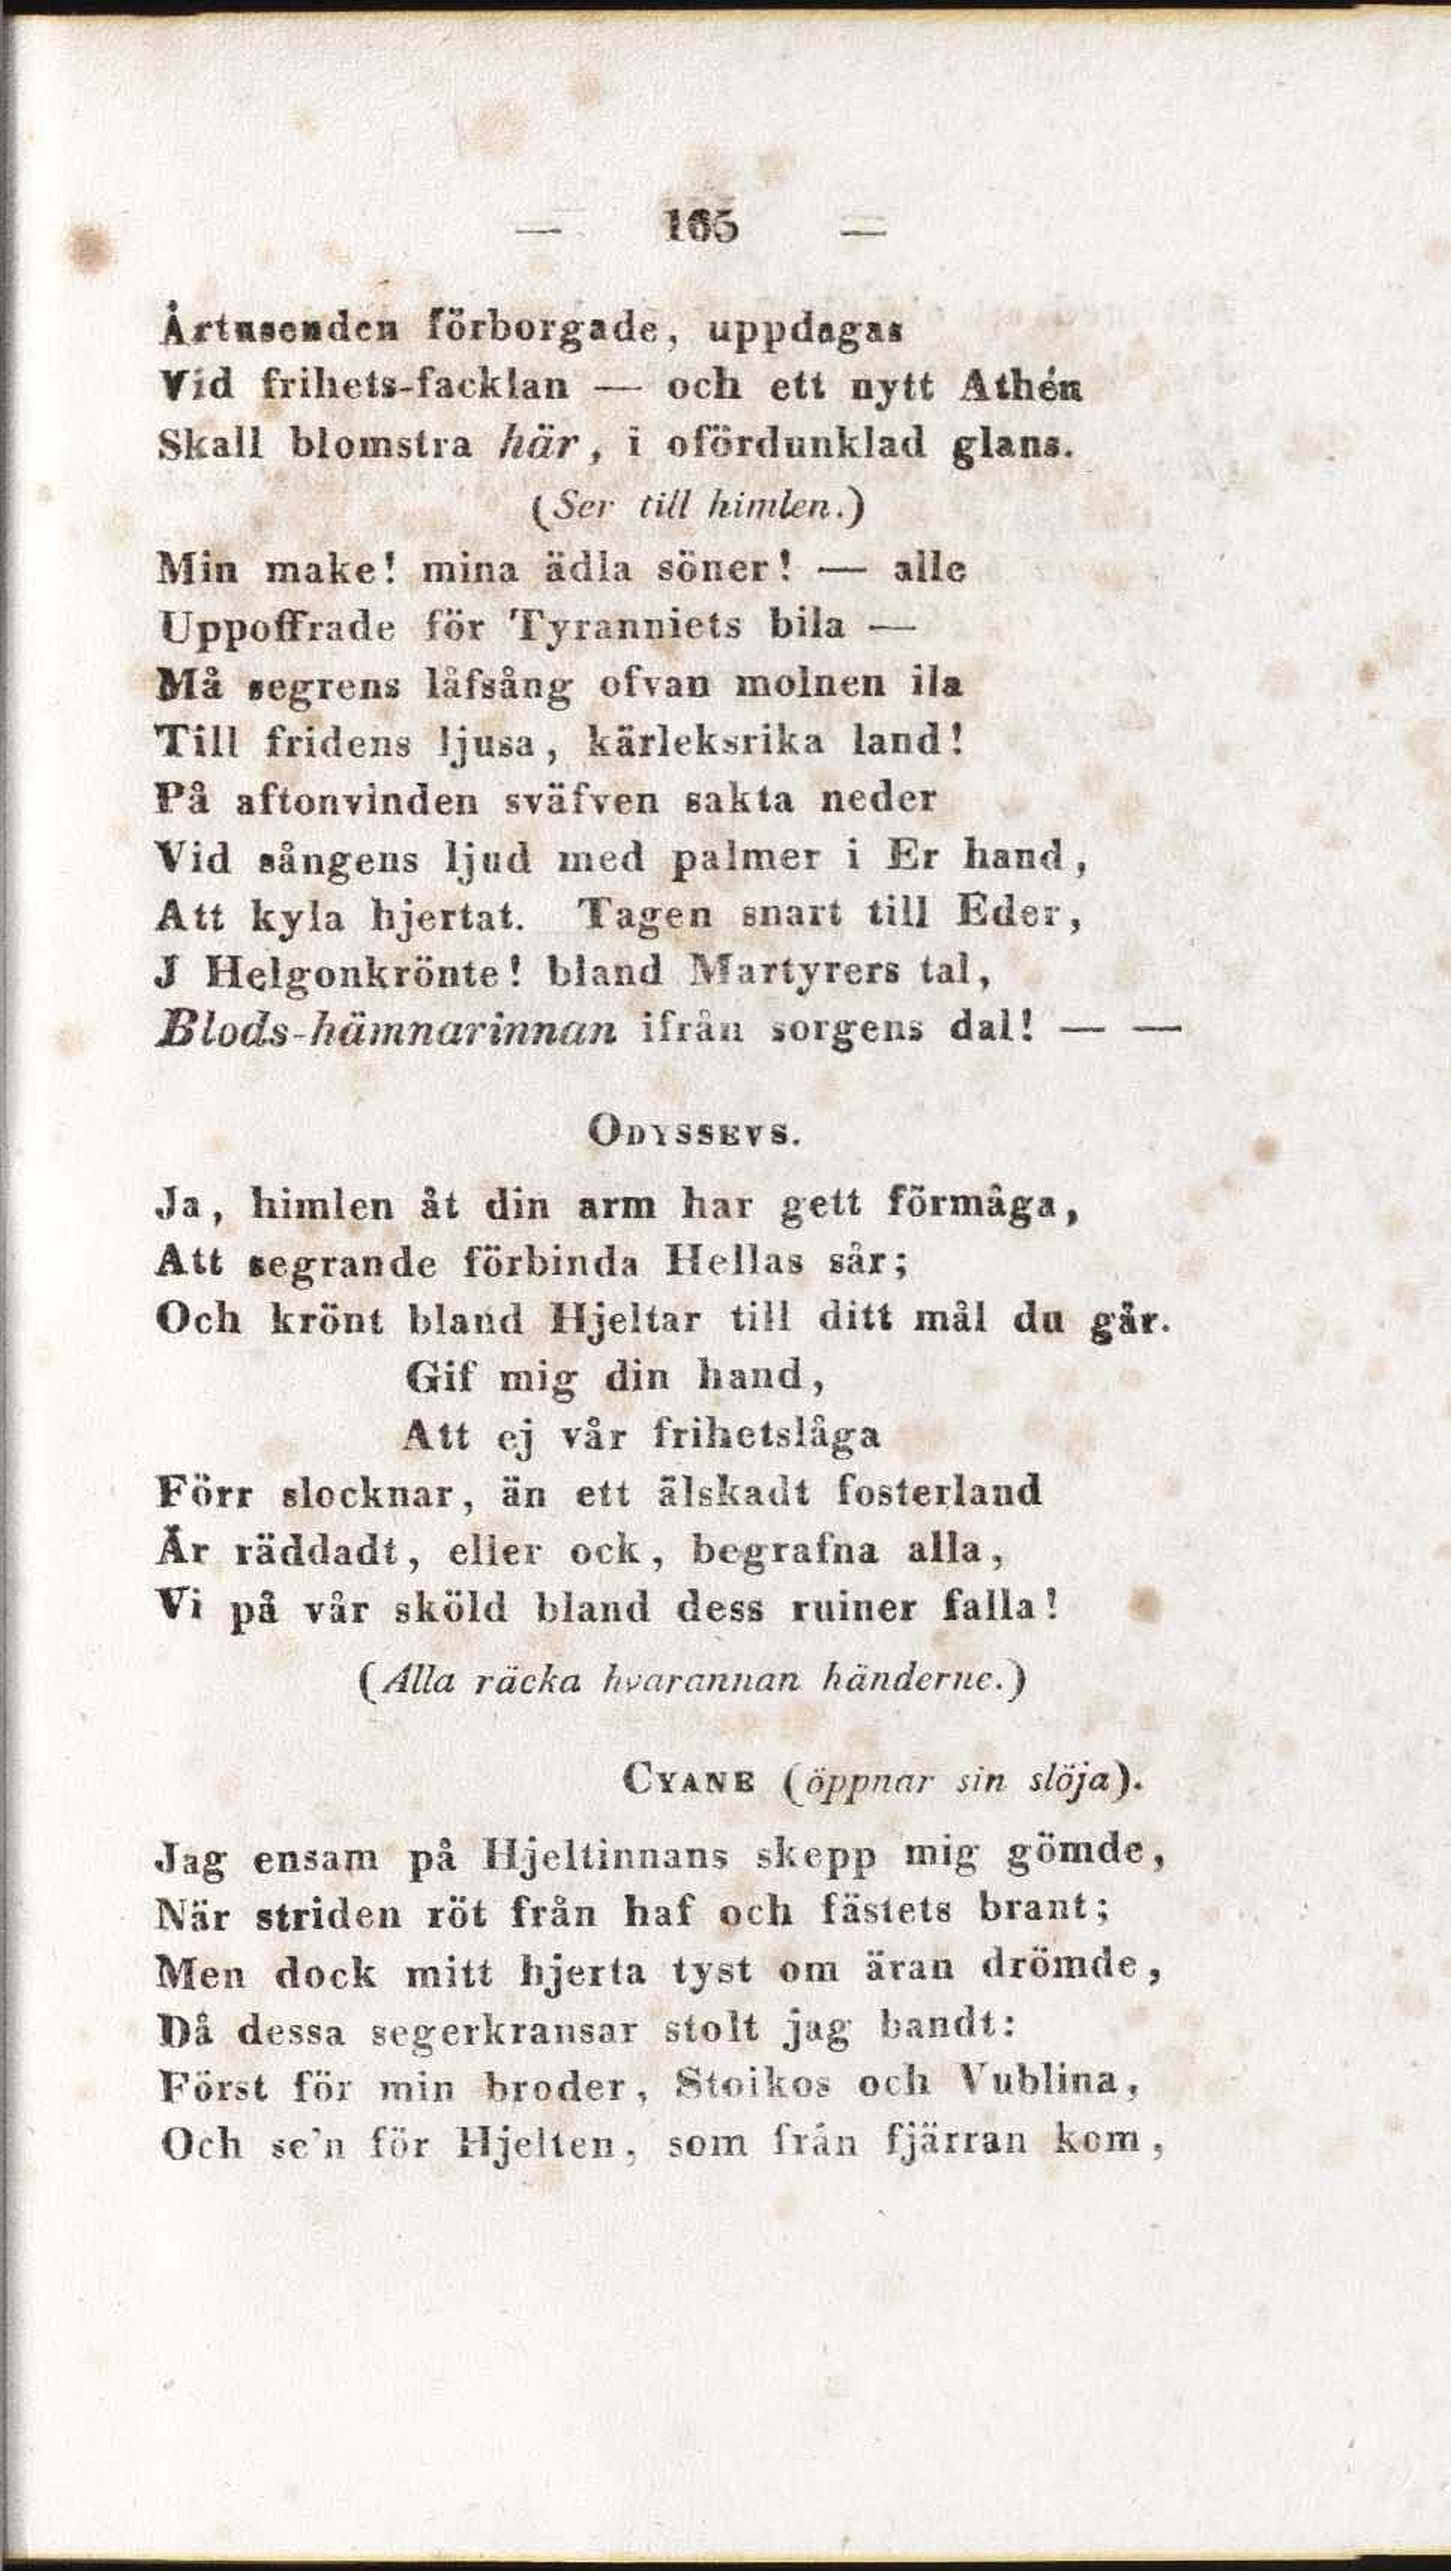 — 165 —
Årtusenden förborgade, uppdagas
Vid frihets-facklan — och ett nytt Athén
Skall blomstra här, i ofördunklad glans.
(Ser till himlen.)
Min make! mina ädla söner! — alle
Uppoffrade för Tyranniets bila —
Må segrens låfsång ofvan molnen ila
Till fridens ljusa, kärleksrika land!
På aftonvinden sväfven sakta neder
Vid sångens ljud med palmer i Er hand,
Att kyla hjertat. Tagen snart till Eder,
J Helgonkrönte! bland Martyrers tal,
Blods-hämnarinnan ifrån sorgens dal! — —
ODYSSEVS.
Ja, himlen åt din arm har gett förmåga,
Att segrande förbinda Hellas sår;
Och krönt bland Hjeltar till ditt mål du går.
Gif mig din hand,
Att ej vår frihetslåga
Förr slocknar, än ett älskadt fosterland
Är räddadt, eller ock, begrafna alla,
Vi på vår sköld bland dess ruiner falla!
(Alla räcka hvarannan händerne.)
CYANE (öppnar sin slöja).
Jag ensam på Hjeltinnans skepp mig gömde,
När striden röt från haf och fästets brant;
Men dock mitt hjerta tyst om äran drömde,
Då dessa segerkransar stolt jag bandt:
Först för min broder, Stoikos och Vublina,
Och se'n för Hjelten, som från fjärran kom,